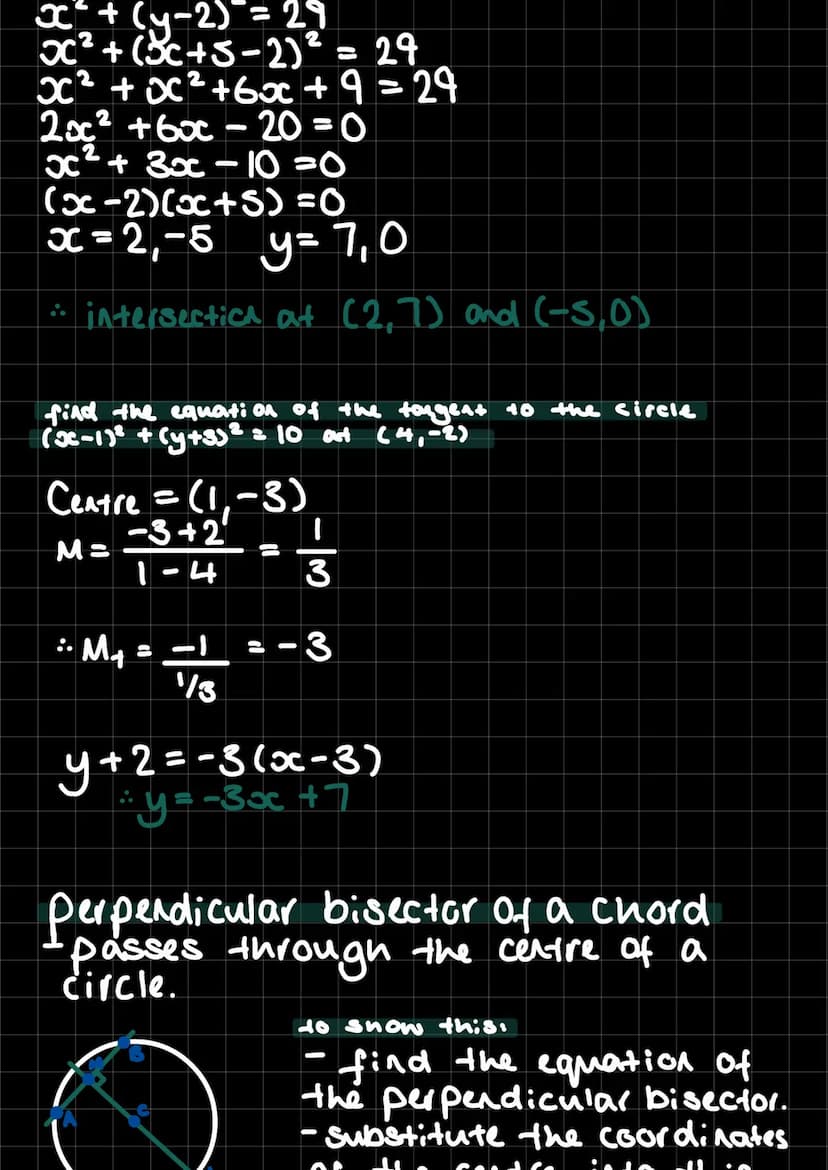 x² + (y-2)² = 29
x² + (x+5-2)² = 29
x² + x² + 6x + 9 = 29
2x² + 6x - 20 = 0
x² + 3x - 10 = 0
(x-2)(x+5) = 0
x = 2, -5 y = 7, 0
∴ intersection at (2,7) and (-5,0)
find the equation of the tangent to the circle
(x-1)² + (y+3)² = 10 at (4,-2)
Centre = (1,-3)
M = -3+2 / 1-4 = 1/3
∴ M₁ = -1 / 1/3 = -3
y + 2 = -3(x-3)
∴ y = -3x + 7
perpendicular bisector of a chord
- passes through the centre of a
circle.
to show this:
- find the equation of
the perpendicular bisector.
- substitute the coordinates
B
M
A
C